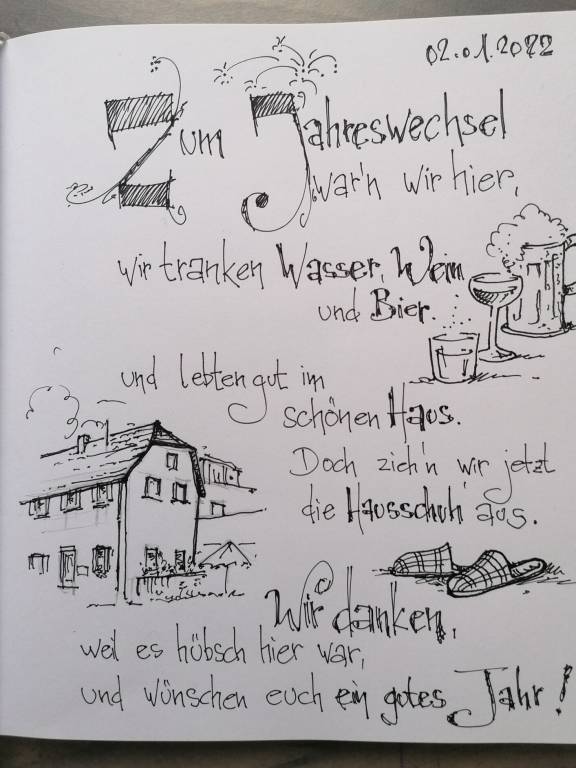 02.01.2022
Zum Jahreswechsel
war'n wir hier,
wir tranken Wasser, Wein
und Bier.
und lebten gut im
schönen Haus.
Doch zieh'n wir jetzt
die Hausschuh' aus.
Wir danken,
weil es hübsch hier war,
und wünschen euch ein gutes Jahr!